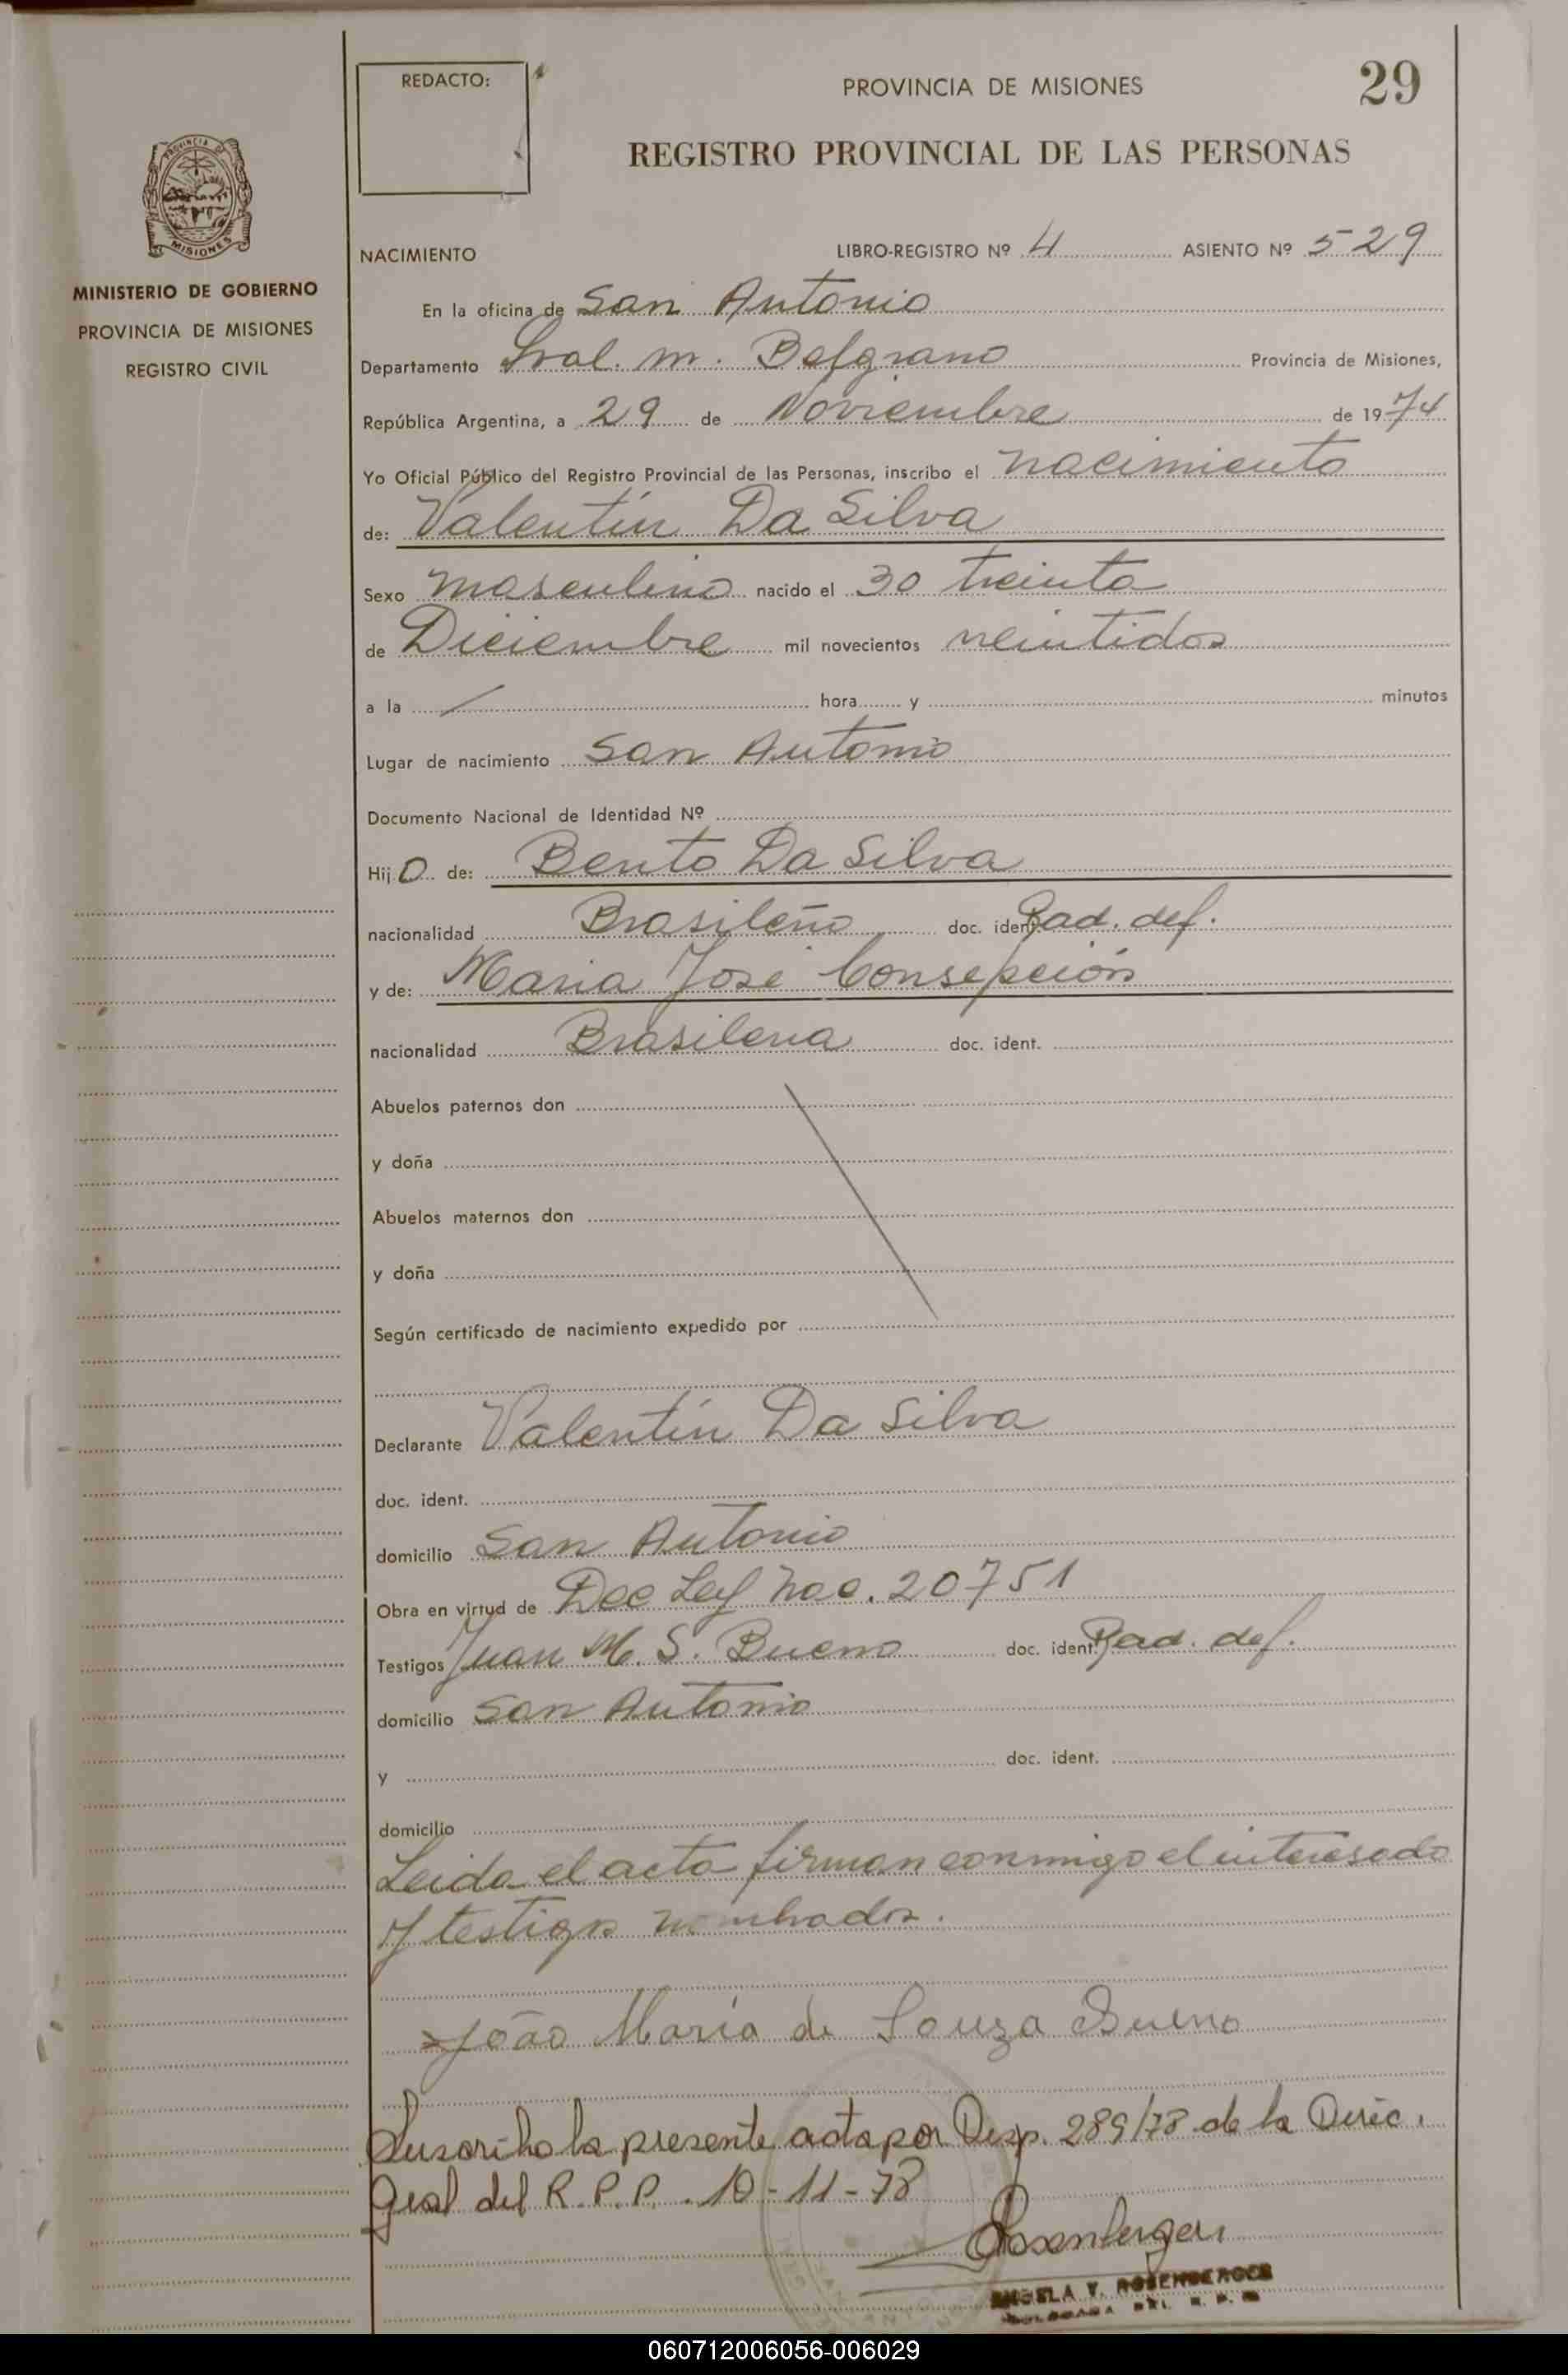 REDACTO:
PROVINCIA DE MISIONES
29
REGISTRO PROVINCIAL DE LAS PERSONAS
PROVINCIA DE
MISIONES
MINISTERIO DE GOBIERNO
PROVINCIA DE MISIONES
REGISTRO CIVIL
NACIMIENTO LIBRO-REGISTRO Nº 4 ASIENTO Nº 529
En la oficina de San Antonio
Departamento Gral. M. Belgrano Provincia de Misiones,
República Argentina, a 29 de Noviembre de 1974
Yo Oficial Público del Registro Provincial de las Personas, inscribo el nacimiento
de: Valentín Da Silva
Sexo masculino nacido el 30 treinta
de Diciembre mil novecientos veintidos
a la hora y minutos
Lugar de nacimiento San Antonio
Documento Nacional de Identidad Nº
Hijo de: Bento Da Silva
nacionalidad Brasileño doc. ident. Rad. def.
y de: Maria José Consepción
nacionalidad Brasilena doc. ident.
Abuelos paternos don
y doña
Abuelos maternos don
y doña
Según certificado de nacimiento expedido por
Declarante Valentín Da Silva
doc. ident.
domicilio San Antonio
Obra en virtud de Dec Ley Nac. 20751
Testigos Juan M. S. Bueno doc. ident. Rad. def.
domicilio San Antonio
y doc. ident.
domicilio
Leida el acta firman conmigo el interesado
y testigos nombrados.
João María de Souza Bueno
Suscribo la presente acta por Disp. 289/78 de la Direc.
Gral del R.P.P. 10-11-78
Rosenberger
ANGELA V. ROSENBERGER
060712006056-006029